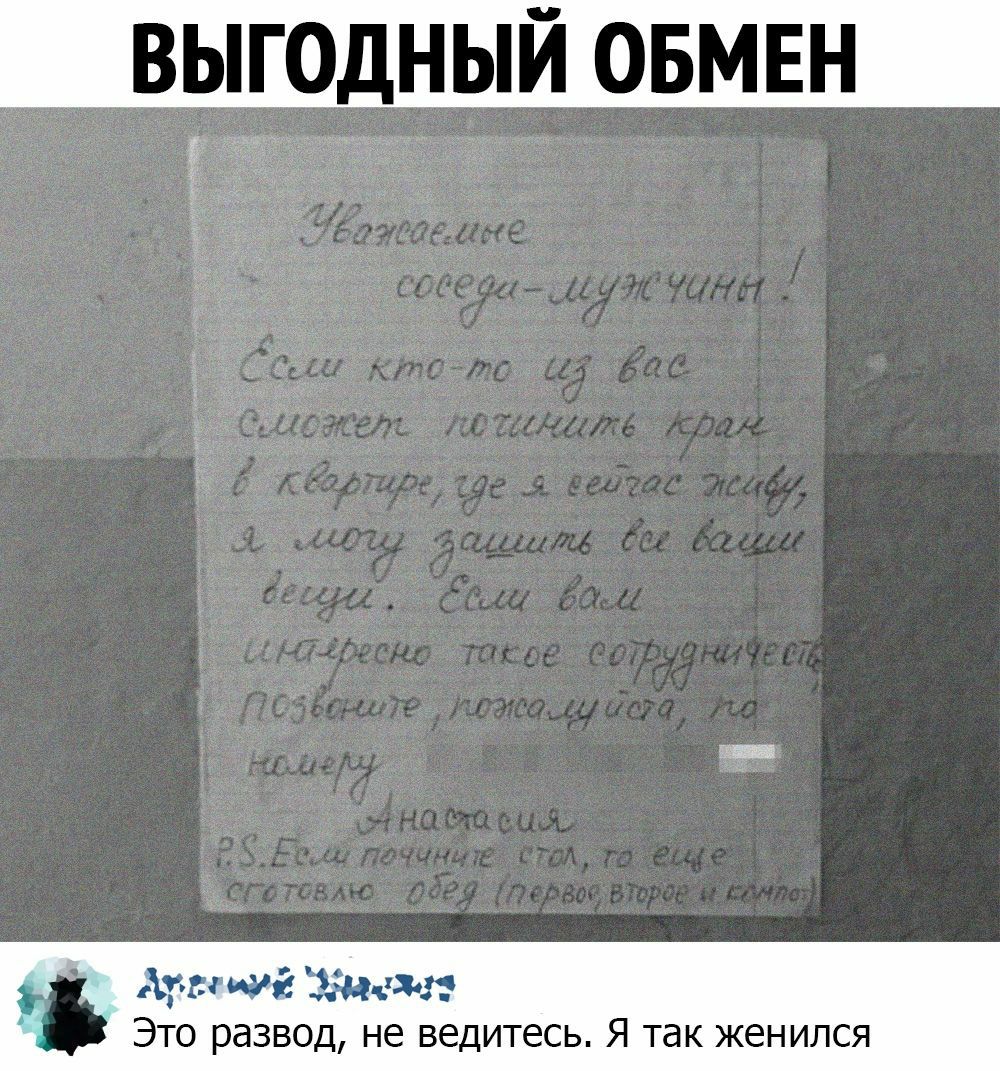 ВЫГОДНЫЙ ОБМЕН
Уважаемые
соседи-мужчины!
Если кто-то из вас
сможет починить кран
в квартире, где я сейчас живу,
я могу зашить все ваши
вещи. Если вам
интересно такое сотрудничеств
позвоните, пожалуйста, по
номеру
Анастасия
P.S. Если почините стол, то еще
сготовлю обед (первое, второе и компот)
Это развод, не ведитесь. Я так женился